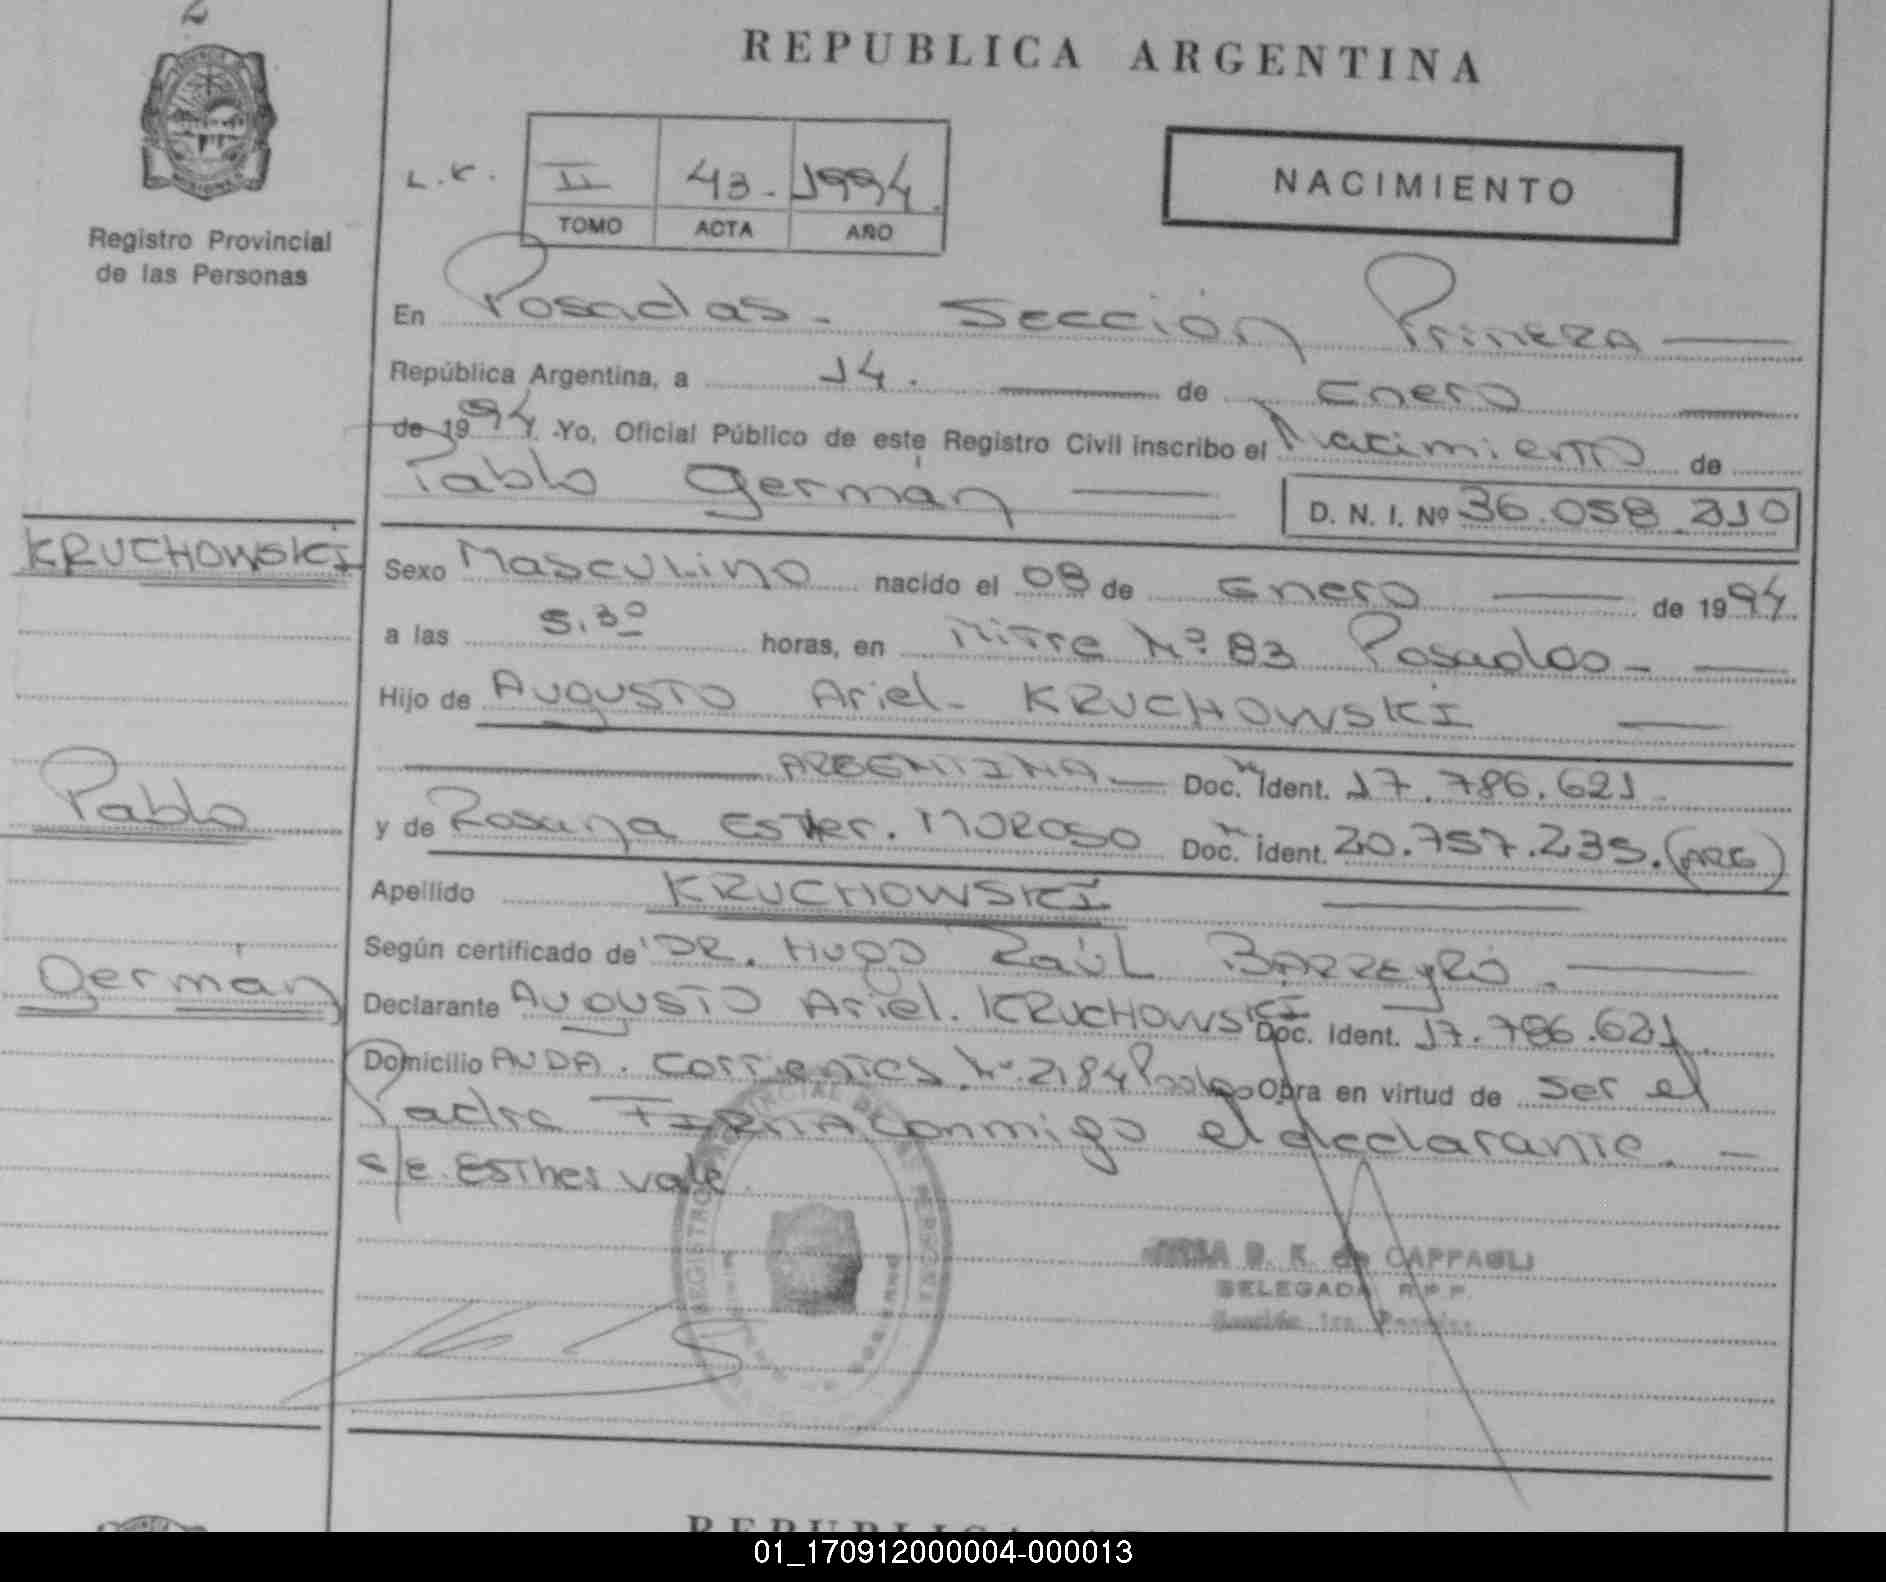 2
REPUBLICA ARGENTINA
L.C. II 43. 1994.
TOMO ACTA AÑO
NACIMIENTO
Registro Provincial
de las Personas
En Posadas - Sección Primera
República Argentina, a 14. de Enero
de 1994. Yo, Oficial Público de este Registro Civil inscribo el Nacimiento de
Pablo Germán D. N. I. Nº 36.058.210
KRUCHOWSKI
Sexo Masculino nacido el 08 de Enero de 1994.
a las 5.30 horas, en Mitre Nº 83 Posadas -
Hijo de AUGUSTO Ariel - KRUCHOWSKI
ARGENTINA Doc. Ident. 17.786.621.
Pablo
y de Rosana Ester. MOROSO Doc. Ident. 20.757.235. (ARG)
Apellido KRUCHOWSKI
Según certificado de DR. HUGO RaúL BARREYRO.
Germán
Declarante AUGUSTO Ariel. KRUCHOWSKI Doc. Ident. 17.786.621.
Domicilio AVDA. Corrientes Nº 2184 Posadas Obra en virtud de ser el
Padre FIRMA conmigo el declarante. -
S/E. ESTher vale
D. K. de CAPPAGLI
DELEGADA R.P.P.
Sección 1ra. Posadas
REGISTRO PROVINCIAL DE LAS PERSONAS
01_170912000004-000013